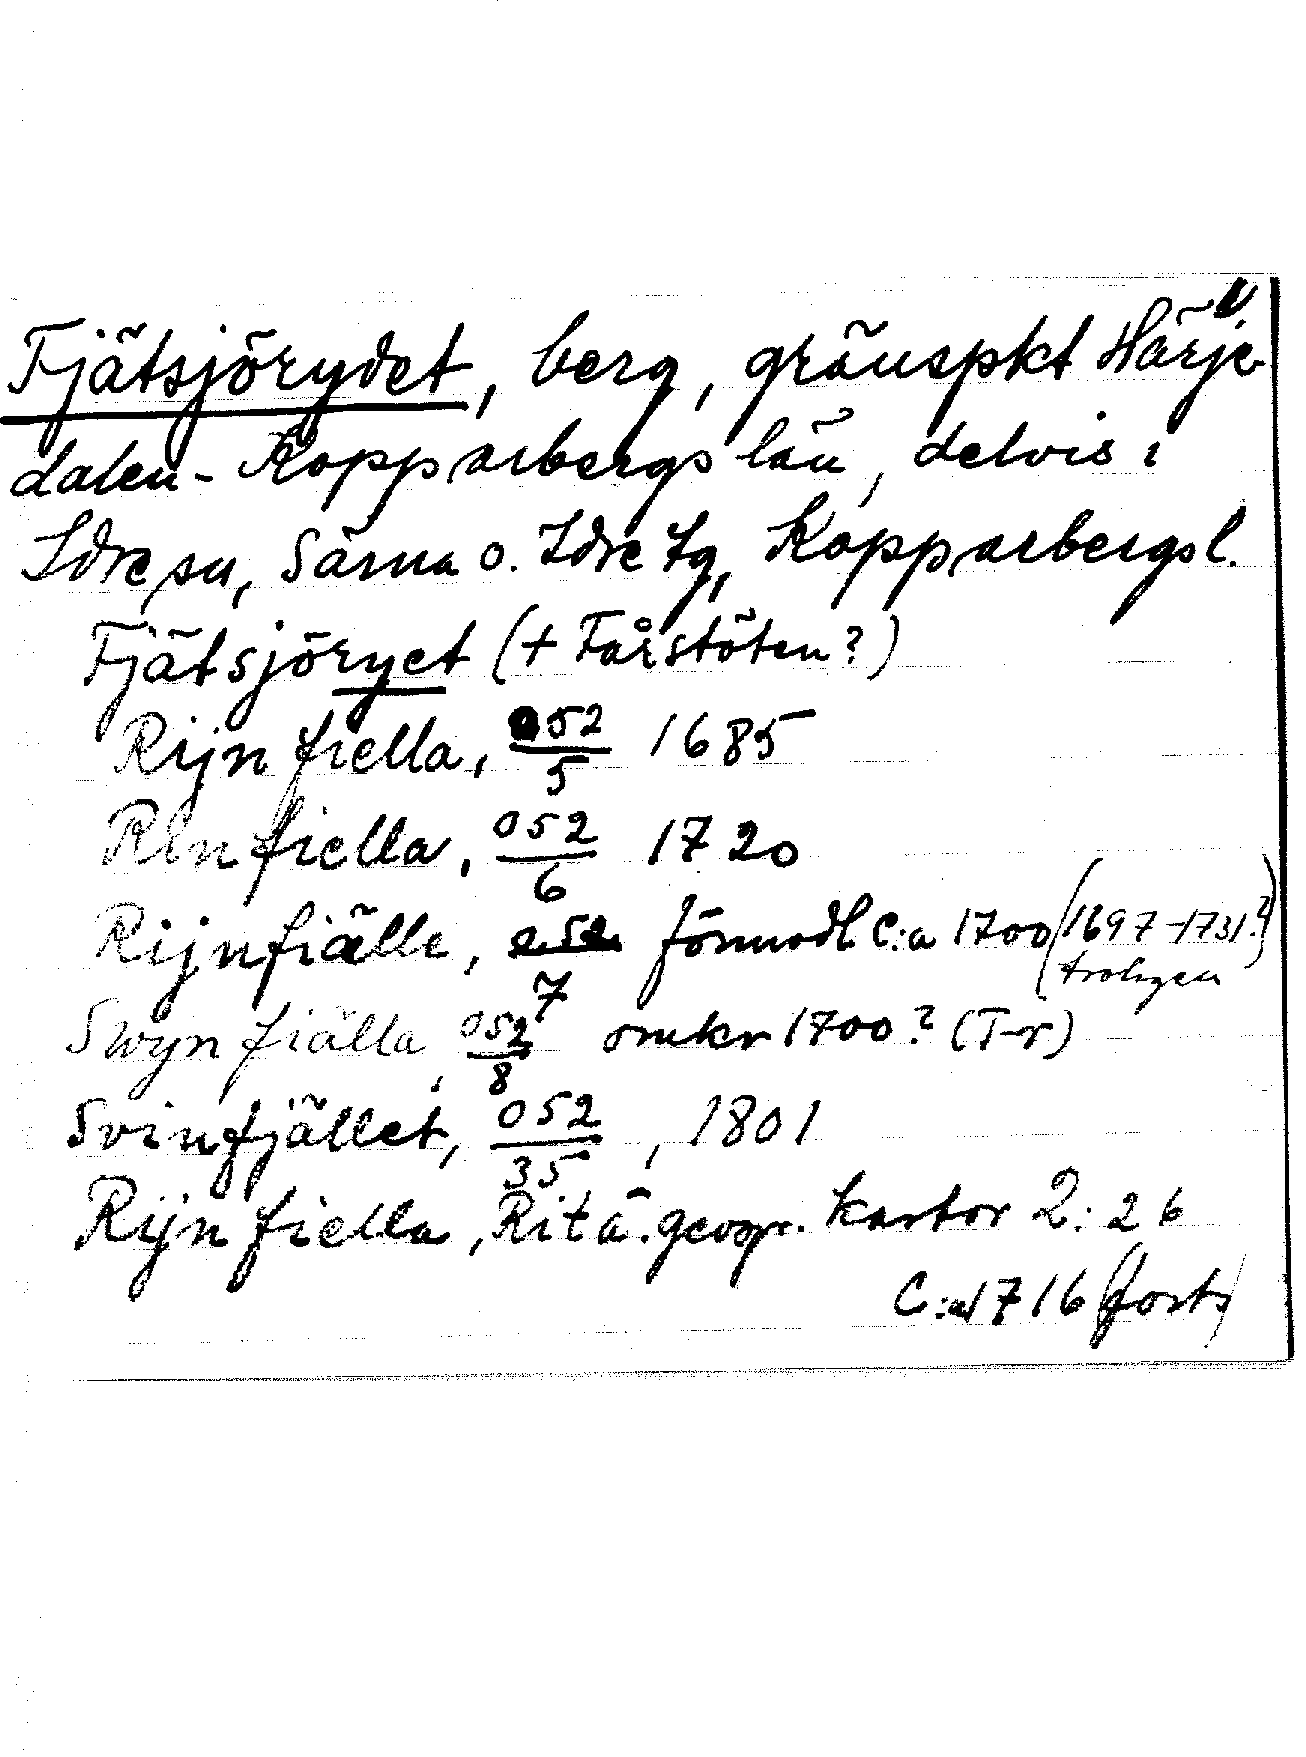 Fjätsjörydet, berg, gränspkt Härje-
dalen - Kopparbergs län, delvis i
Idre sn, Särna o. Idre tg, Kopparbergs l.
Fjätsjöryet (+ Fårstöten?)
Rijn fiella, 052/5 1685
Ren fiella, 052/6 1720
Rijnfiälle, 052/7 förmodl c:a 1700 (1697-1731?)
troligen
Swyn fiälla, 052/8 omkr 1700? (T-r)
Svinfjället, 052/35, 1801
Rijn fiella, Rit ä. geogr. kartor 2:26
C:a 1716 (forts)